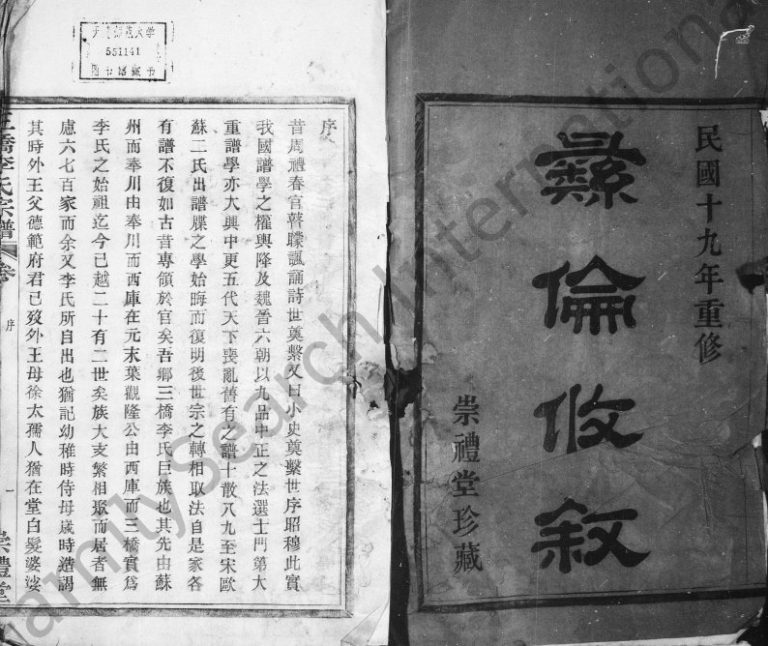 民國十九年重修
彝倫攸敘
崇禮堂珍藏
序
昔周禮春官瞽矇諷誦詩世奠繫又曰小史奠繫世序昭穆此實
我國譜學之權輿隆及魏晉六朝以九品中正之法選士門第大
重譜學亦大興中更五代天下喪亂舊有之譜十散八九至宋歐
蘇二氏出譜牒之學始晦而復明後世宗之轉相取法自是家各
有譜不復如古昔專領於官矣吾鄉三橋李氏巨族也其先由蘇
州而奉川由奉川而西庫在元末葉觀隆公由西庫而三橋實為
李氏之始祖迄今已越二十有二世矣族大支繁相聚而居者無
慮六七百家而余又李氏所自出也猶記幼稚時侍母歲時造謁
其時外王父德範府君已歿外王母徐太孺人猶在堂白髮婆娑
三橋李氏宗譜
卷
序
一
崇禮堂
551141
FamilySearch International